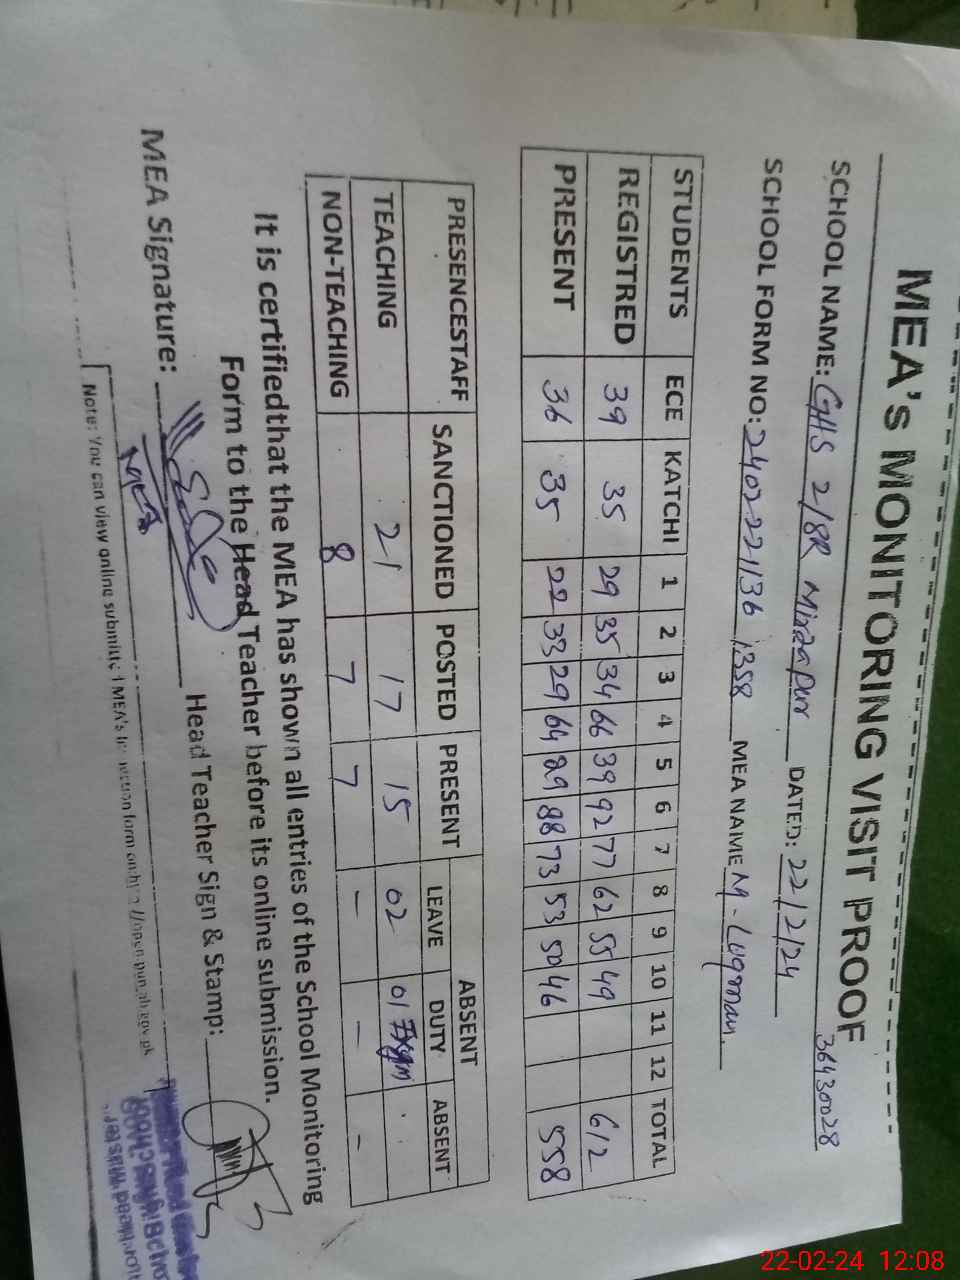 MEA's MONITORING VISIT PROOF
36430028
SCHOOL NAME: GHS 2/8R Mirzapur DATED: 22/2/24
SCHOOL FORM NO: 2402221136 1358 MEA NAME M. Luqman.
STUDENTS ECE KATCHI 1 2 3 4 5 6 7 8 9 10 11 12 TOTAL
REGISTRED 39 35 29 35 34 66 39 92 77 62 55 49 612
PRESENT 36 35 22 33 29 64 29 88 73 53 50 46 558
PRESENCESTAFF SANCTIONED POSTED PRESENT ABSENT
LEAVE DUTY ABSENT
TEACHING 21 17 15 02 01
NON-TEACHING 8 7 7 - - -
It is certifiedthat the MEA has shown all entries of the School Monitoring
Form to the Head Teacher before its online submission.
MEA Signature: Head Teacher Sign & Stamp:
MEA
Note: You can view online submitted MEA's form on
22-02-24 12:08